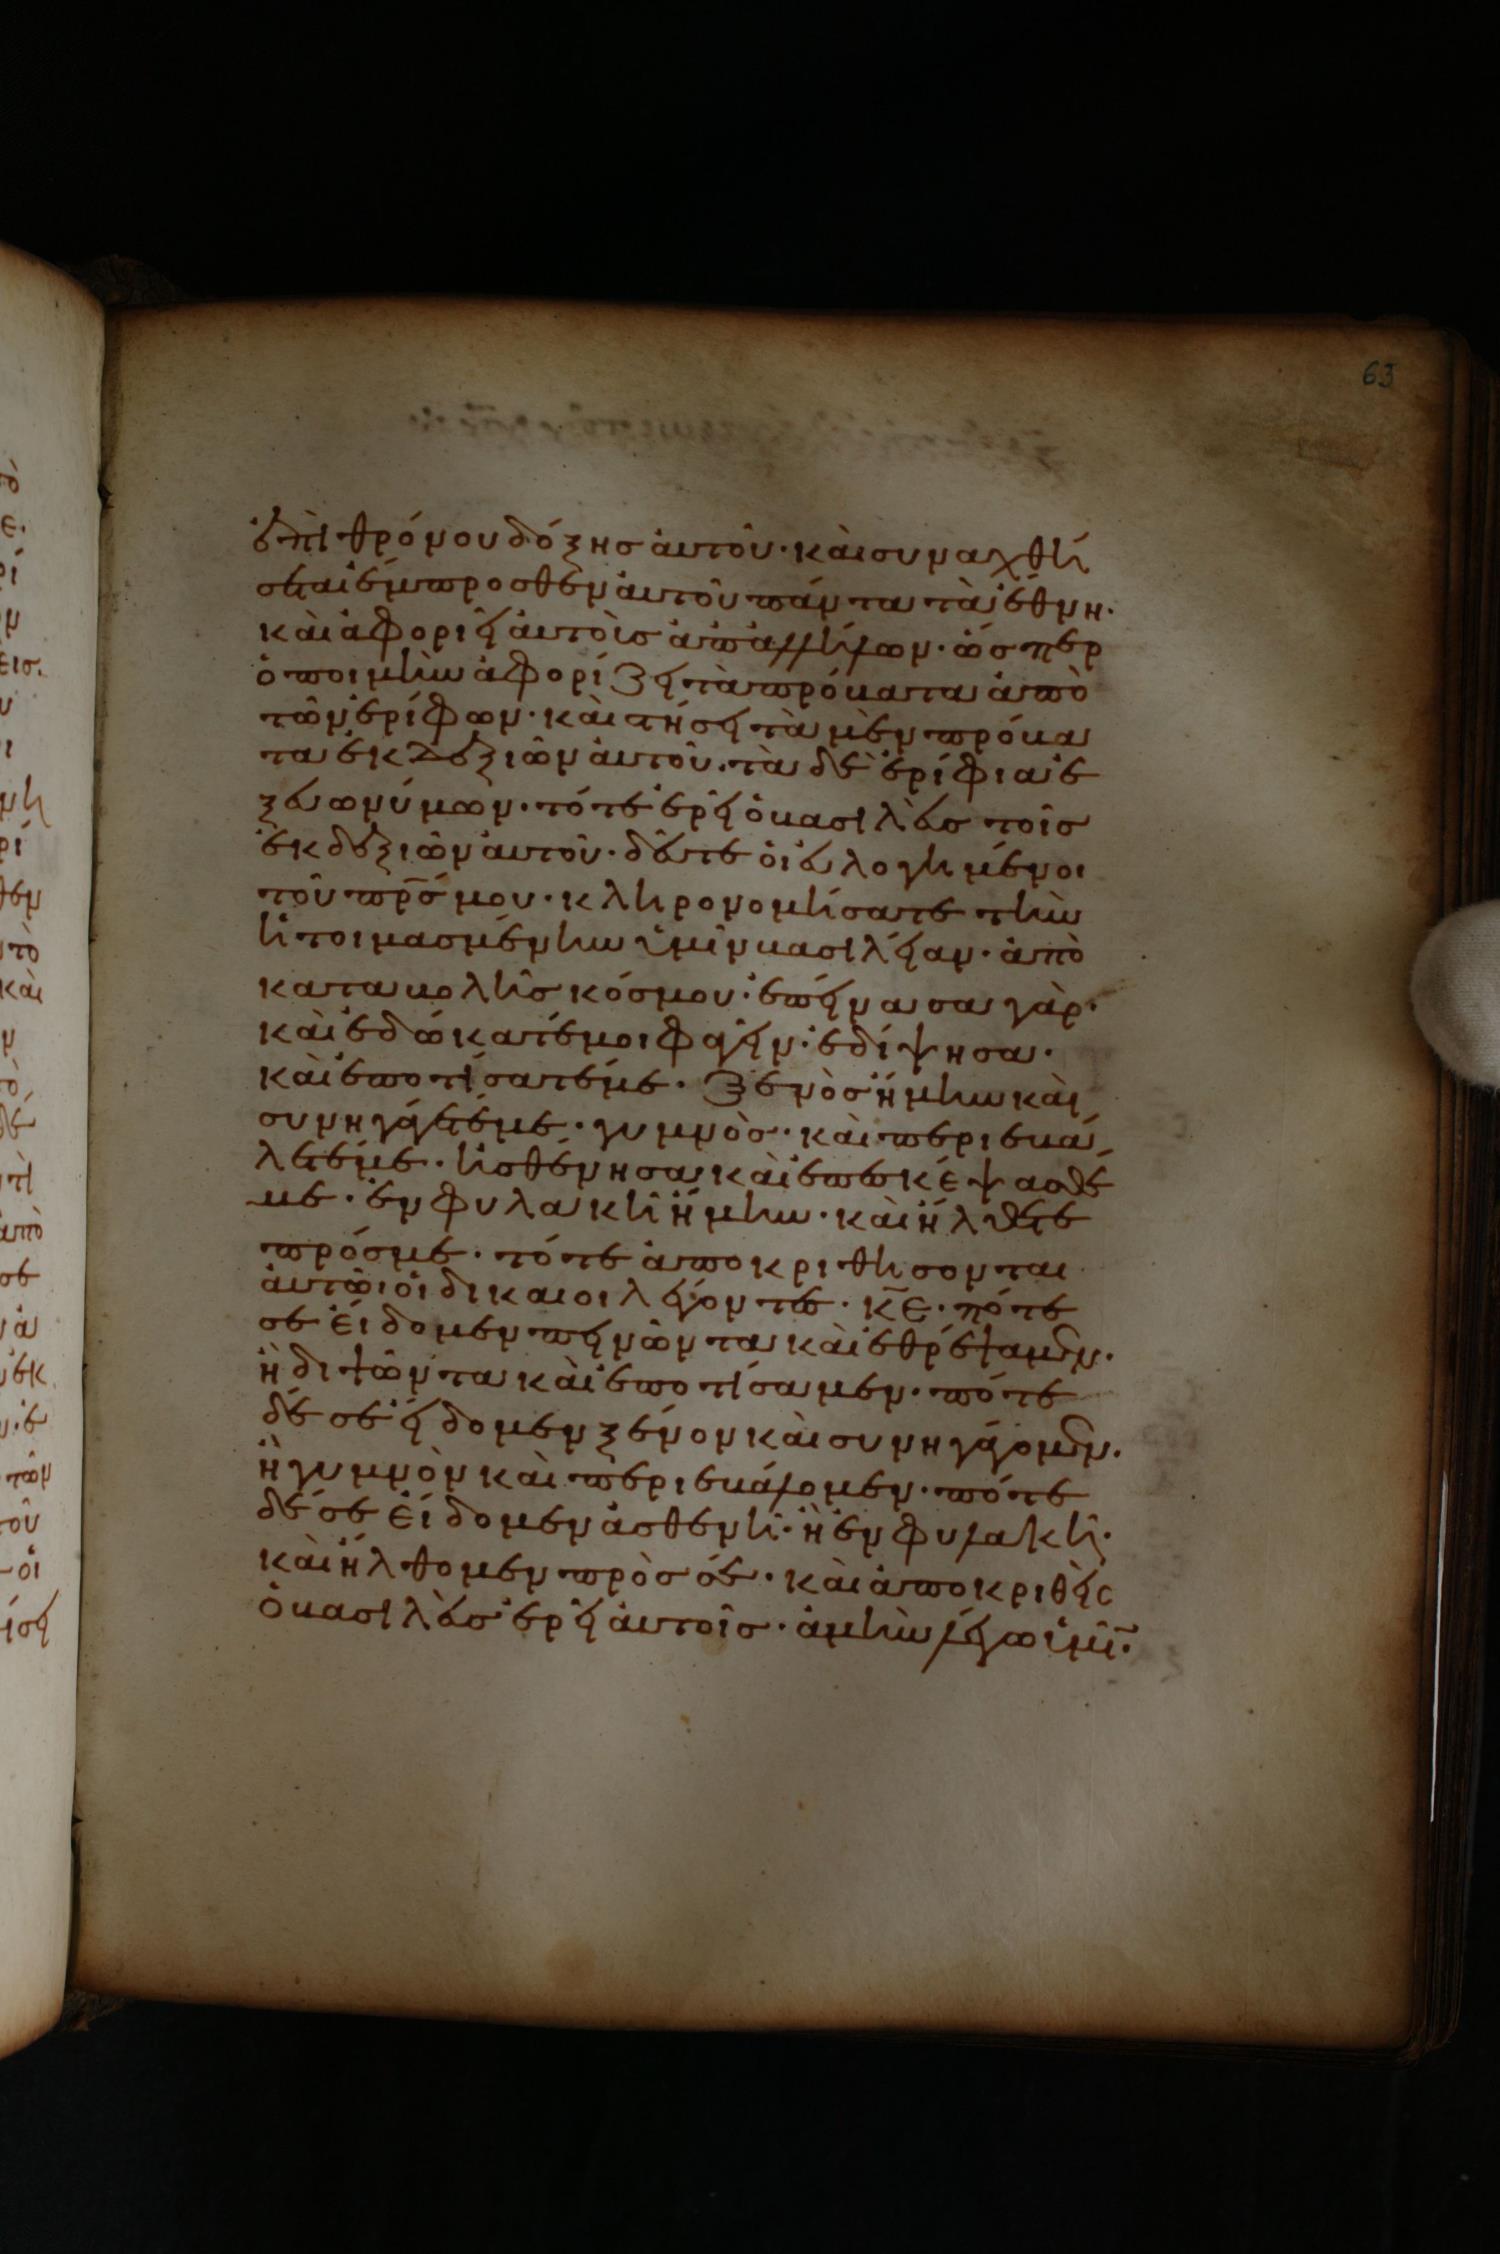 63
ἐπὶ θρόνου δόξης αὐτοῦ· καὶ συναχθή
σεται ἔμπροσθεν αὐτοῦ πάντα τὰ ἔθνη·
καὶ ἀφοριεῖ αὐτοὺς ἀπ' ἀλλήλων· ὥσπερ
ὁ ποιμὴν ἀφορίζει τὰ πρόβατα ἀπὸ
τῶν ἐρίφων· καὶ στήσει τὰ μὲν πρόβα
τα ἐκ δεξιῶν αὐτοῦ· τὰ δὲ ἐρίφια ἐ
ξ εὐωνύμων· τότε ἐρεῖ ὁ βασιλεὺς τοῖς
ἐκ δεξιῶν αὐτοῦ· δεῦτε οἱ εὐλογημένοι
τοῦ πρς μου· κληρονομήσατε τὴν
ἡτοιμασμένην ὑμῖν βασιλείαν· ἀπὸ
καταβολῆς κόσμου· ἐπείνασα γὰρ·
καὶ ἐδώκατέ μοι φαγεῖν· ἐδίψησα·
καὶ ἐποτίσατέ με· ξένος ἤμην καὶ
συνηγάγετέ με· γυμνὸς· καὶ περιεβά
λετέ με· ἠσθένησα καὶ ἐπεσκέψασθέ
με· ἐν φυλακῆ ἤμην· καὶ ἤλθετε
πρός με· τότε ἀποκριθήσονται
αὐτῶι οἱ δίκαιοι λέγοντες· κε· πότε
σε εἴδομεν πεινῶντα καὶ ἐθρέψαμεν·
ἢ διψῶντα καὶ ἐποτίσαμεν· πότε
δέ σε εἴδομεν ξένον καὶ συνηγάγομεν·
ἢ γυμνὸν καὶ περιεβάλομεν· πότε
δέ σε εἴδομεν ἀσθενῆ· ἢ ἐν φυλακῆ·
καὶ ἤλθομεν πρὸς σέ· καὶ ἀποκριθεὶς
ὁ βασιλεὺς ἐρεῖ αὐτοῖς· ἀμὴν λέγω ὑμῖ·